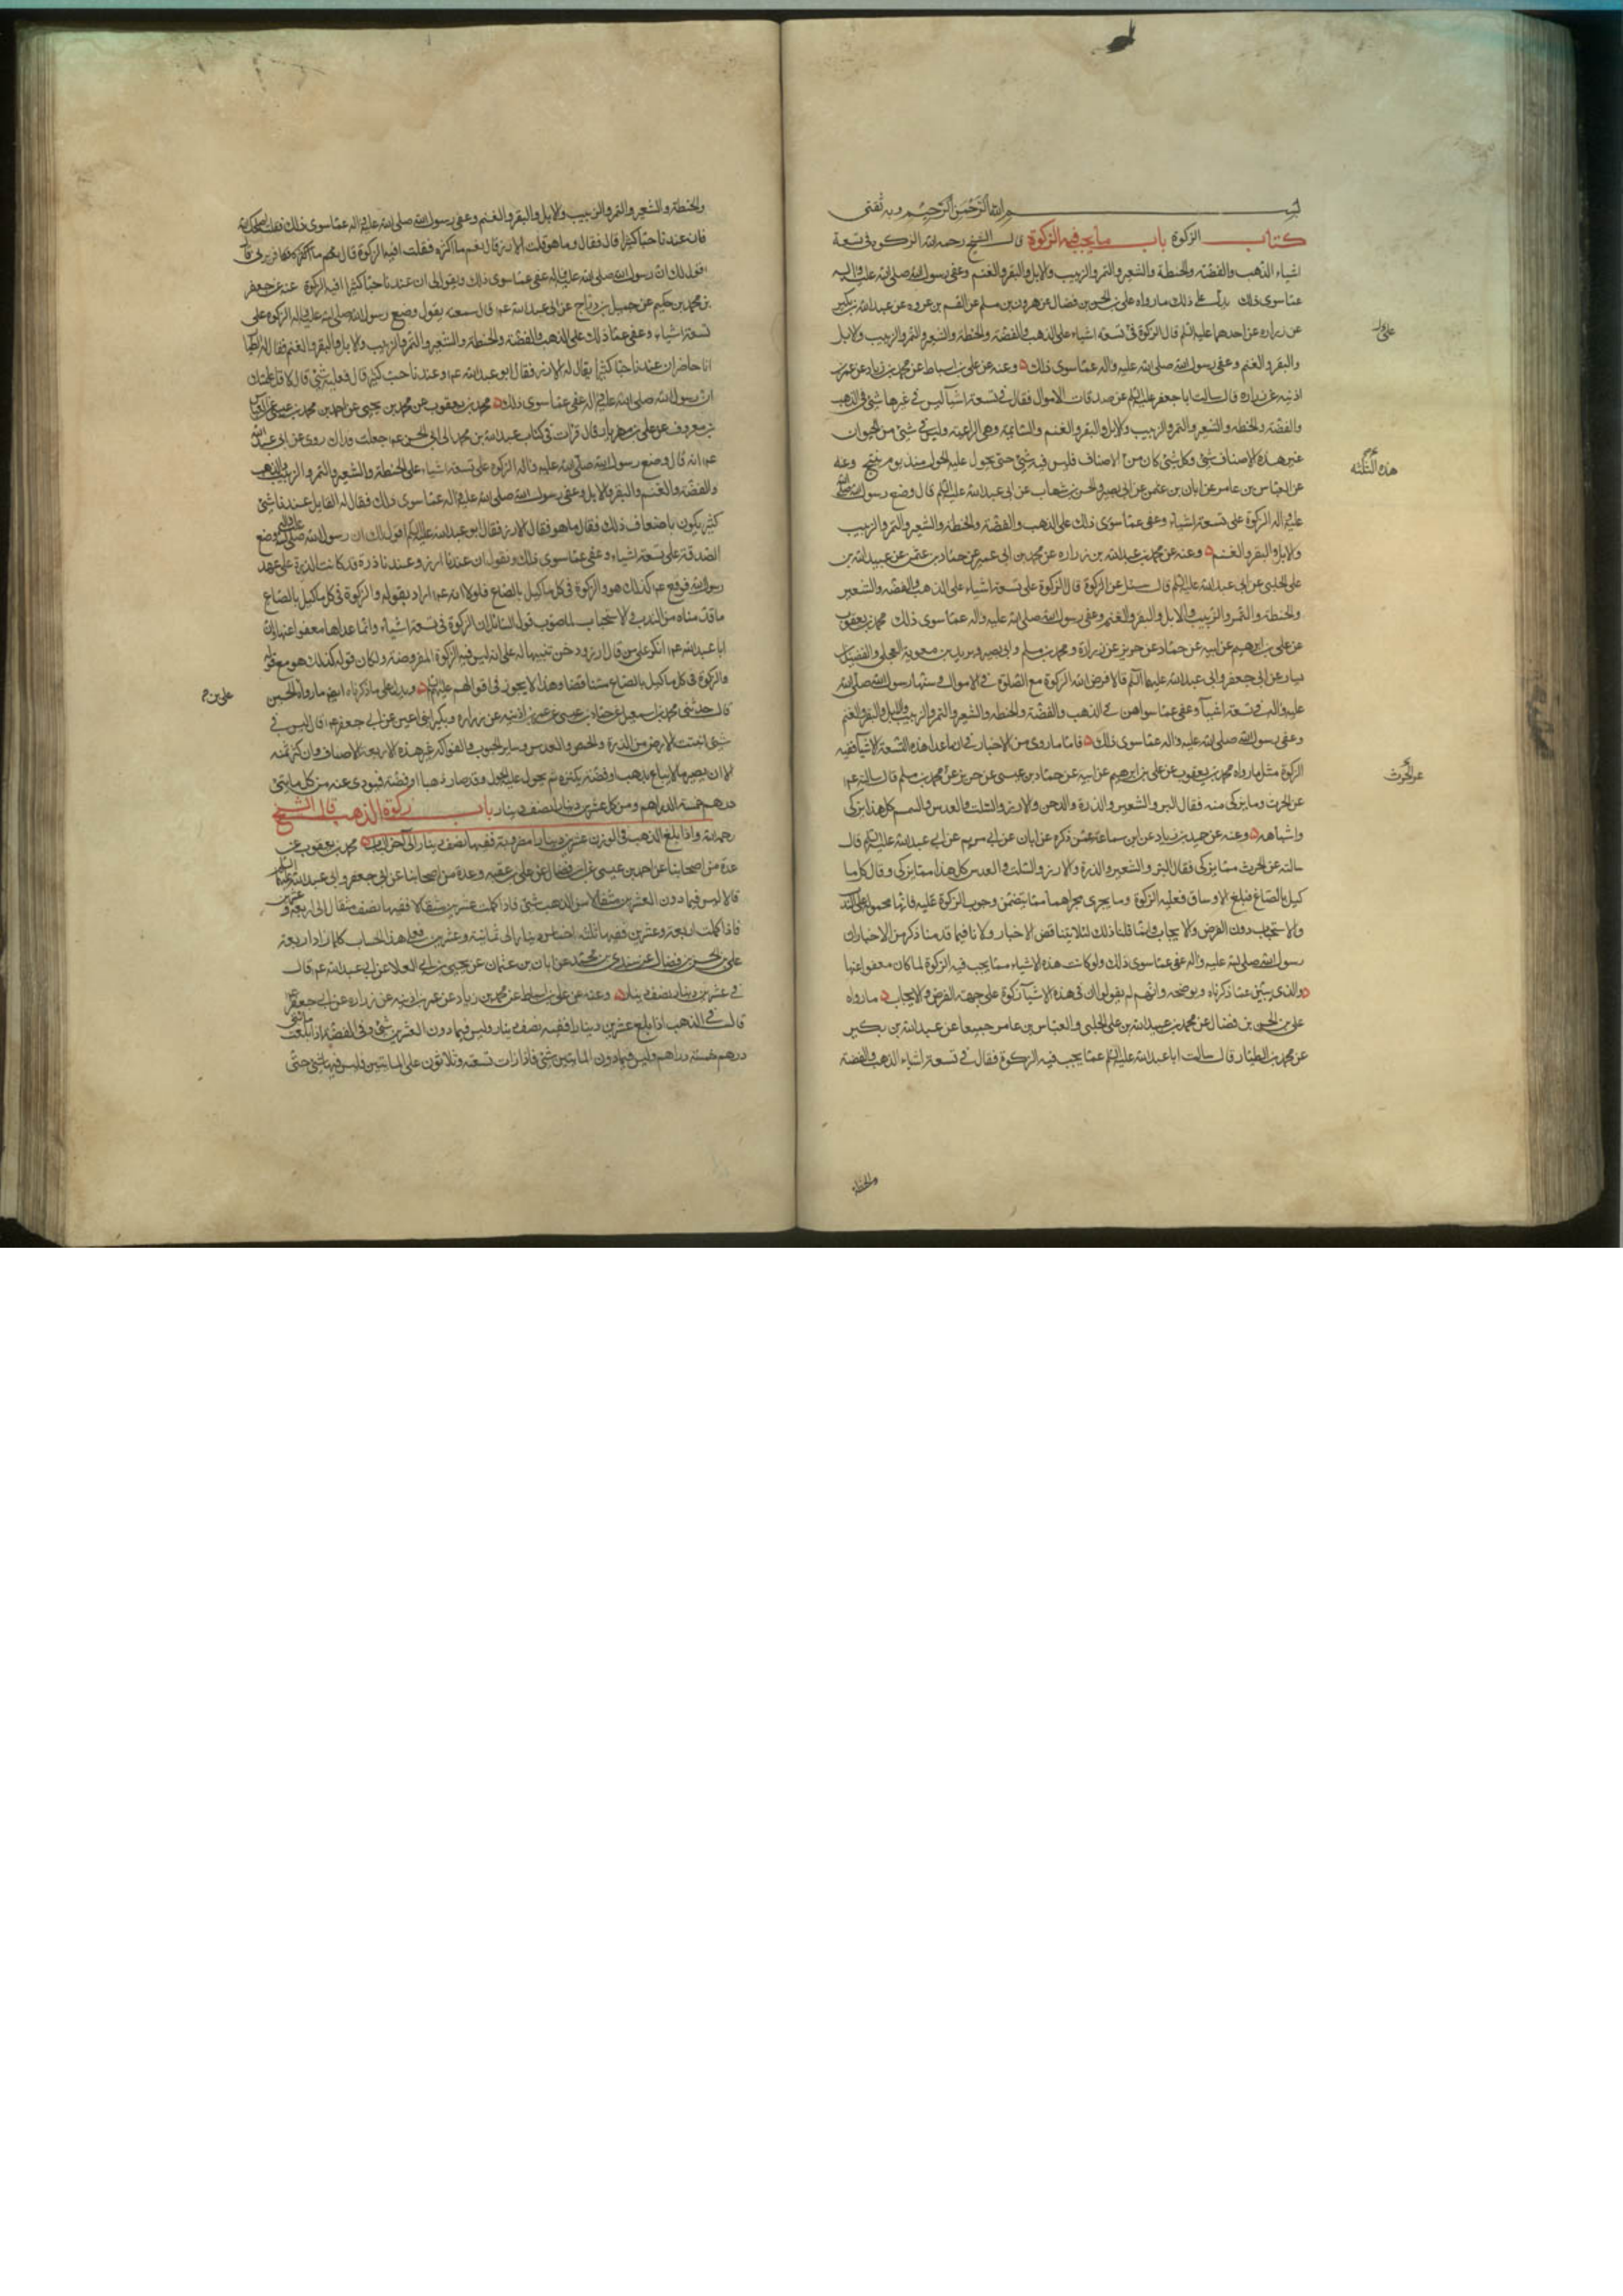 بسم الله الرحمن الرحيم وبه ثقتي
كتاب الزكوة باب ما يجب فيه الزكوة قال الشيخ رحمه الله الزكوة في تسعة
اشياء الذهب والفضة والحنطة والشعير والتمر والزبيب والابل والبقر والغنم وعفى رسول الله صلى الله عليه واله
عما سوى ذلك يدل على ذلك ما رواه علي بن الحسن بن فضال عن هرون بن مسلم عن القسم بن عروه عن عبدالله بن بكير
عن زراره عن احدهما عليه السلم قال الزكوة في تسعة اشياء على الذهب والفضة والحنطة والشعير والتمر والزبيب والابل
والبقر والغنم وعفى رسول الله صلى الله عليه واله عما سوى ذلك وعنه عن علي بن اسباط عن محمد بن زياد عن عمر بن
اذينه عن زراره قال سالت ابا جعفر عليه السلم عن صدقات الاموال فقال في تسعة اشيآ ليس في غيرها شئ في الذهب
والفضة والحنطه والشعير والتمر والزبيب والابل والبقر والغنم والسائمة وهي الراعية وليس في شئ من الحيوان
غير هذه الاصناف شئ وكل شئ كان من الاصناف فليس فيه شئ حتى يحول عليه الحول منذ يوم ينتج وعنه
عن العباس بن عامر عن ابان بن عثمن عن ابي بصير والحسن بن شهاب عن ابي عبدالله عليه السلم قال وضع رسول الله صلى الله
عليه واله الزكوة على تسعة اشياء وعفى عما سوى ذلك على الذهب والفضة والحنطه والشعير والتمر والزبيب
والابل والبقر والغنم وعنه عن محمد بن عبيدالله بن زراره عن محمد بن ابي عمير عن حماد بن عثمن عن عبيدالله بن
علي الحلبي عن ابي عبدالله عليه السلم قال سئل عن الزكوة قال الزكوة على تسعة اشياء على الذهب والفضه والشعير
والحنطه والتمر والزبيب والابل والبقر والغنم وعفى رسول الله صلى الله عليه واله عما سوى ذلك محمد بن يعقوب
عن علي بن ابرهيم عن ابيه عن حماد عن حريز عن زرارة ومحمد بن مسلم وابي بصير وبريد بن معوية العجلي والفضيل بن
يسار عن ابي جعفر وابي عبدالله عليهما السلم قالا فرض الله الزكوة مع الصلوة في الاموال وسنها رسول الله صلى الله
عليه واله في تسعة اشيآ وعفى عما سواهن في الذهب والفضة والحنطه والشعير والتمر والزبيب والابل والبقر والغنم
وعفى رسول الله صلى الله عليه واله عما سوى ذلك فاما ما روي من الاخبار في ان ما عدا هذه التسعة الاشيآ فيه
الزكوة مثل ما رواه محمد بن يعقوب عن علي بن ابرهيم عن ابيه عن حماد بن عيسى عن حريز عن محمد بن مسلم قال سالته عم
عن الحرث وما يزكى منه فقال البر والشعير والذرة والدخن والارز والسلت والعدس والسمسم كل هذا يزكى
واشباهه وعنه عن حميد بن زياد عن ابن سماعة عمن ذكره عن ابان عن ابي مريم عن ابي عبدالله عليه السلم قال
سالته عن الحرث مما يزكى فقال البر والشعير والذرة والارز والسلت والعدس كل هذا مما يزكى وقال كل ما
كيل بالصاع فبلغ الاوساق فعليه الزكوة وما يجري مجراهما مما يتضمن وجوب الزكوة عليه فانها محمولة على الندب
والاستحباب دون الفرض والايجاب وانما قلنا ذلك لئلا يتناقض الاخبار ولانا فيما قدمنا ذكره من الاخبار ان
رسول الله صلى الله عليه واله عفى عما سوى ذلك ولو كانت هذه الاشياء مما يجب فيه الزكوة لما كان معفوا عنها
والذي يبين عما ذكرناه ويوضحه وانهم لم يقولوا ان في هذه الاشيآ زكوة على جهة الفرض والايجاب ما رواه
علي بن الحسن بن فضال عن محمد بن عبيدالله بن علي الحلبي والعباس بن عامر جميعا عن عبدالله بن بكير
عن محمد بن الطيار قال سالت ابا عبدالله عليه السلم عما يجب فيه الزكوة فقال في تسعة اشياء الذهب والفضة
والحنطة
على
هذه الثلثة
عن الحرث
والحنطة والشعير والتمر والزبيب والابل والبقر والغنم وعفى رسول الله صلى الله عليه واله عما سوى ذلك فقلت اصلحك الله
فان عندنا حبا كثيرا قال فقال وما هو قلت الارز قال نعم ما اكثره فقلت افيه الزكوة قال
اقول لك ان رسول الله صلى الله عليه واله عفى عما سوى ذلك وتقول لي ان عندنا حبا كثيرا افيه الزكوة عنه عن جعفر
بن محمد بن حكيم عن جميل بن دراج عن ابي عبدالله عم قال سمعته يقول وضع رسول الله صلى الله عليه واله الزكوة على
تسعة اشياء وعفى عما سوى ذلك على الذهب والفضة والحنطة والشعير والتمر والزبيب والابل والبقر والغنم فقال له الطيار
انا حاضر ان عندنا حبا كثيرا يقال له الارز فقال ابو عبدالله عم وعندنا حب كثير قال فعليه شئ قال لا قد اعلمتك
ان رسول الله صلى الله عليه واله عفى عما سوى ذلك محمد بن يعقوب عن محمد بن يحيى عن احمد بن محمد بن عيسى عن العباس
بن معروف عن علي بن مهزيار قال قرات في كتاب عبدالله بن محمد الى ابي الحسن عم جعلت فداك روي عن ابي عبدالله
عم انه قال وضع رسول الله صلى الله عليه واله الزكوة على تسعة اشياء على الحنطة والشعير والتمر والزبيب والذهب
والفضة والغنم والبقر والابل وعفى رسول الله صلى الله عليه واله عما سوى ذلك فقال له القايل عندنا شئ
كثير يكون باضعاف ذلك فقال ما هو فقال الارز فقال ابو عبدالله عليه السلم اقول لك ان رسول الله صلى الله عليه واله وضع
الصدقة على تسعة اشياء وعفى عما سوى ذلك وتقول ان عندنا ارز وعندنا ذرة قد كانت الذرة على عهد
رسول الله فوقع عم كذلك هو والزكوة في كل ما كيل بالصاع فلولا انه عم اراد بقوله والزكوة في كل ما كيل بالصاع
ما قدمناه من الندب والاستحباب لما صوب قول السائل ان الزكوة في تسعة اشياء وانما عداها معفوا عنها وان
ابا عبدالله عم انكر على من قال ارز ودخن تنبيها له على انه ليس فيه الزكوة المفروضة ولكان قوله كذلك هو مع قوله
والزكوة في كل ما كيل بالصاع متناقضا وهذا لا يجوز في اقوالهم عليهم السلم ويدل على ما ذكرناه ايضا ما رواه الحسين
قال حدثني محمد بن اسمعيل عن حماد بن عيسى عن عمر بن اذينه عن زراره وبكير ابني اعين عن ابي جعفر عم قال ليس في
شئ انبتت الارض من الذرة والحمص والعدس وساير الحبوب والفواكه غير هذه الاربعة الاصناف وان كثر ثمنه
الا ان يصير مالا يباع بذهب او فضة يكنزه ثم يحول عليه الحول وقد صار ذهبا او فضة فيودى عنه من كل مايتي
درهم خمسة دراهم ومن كل عشرين دينارا نصف دينار باب زكوة الذهب قال الشيخ
رحمه الله واذا بلغ الذهب في الوزن عشرين دينارا مضروبة ففيها نصف دينار الى آخر الباب محمد بن يعقوب عن
عدة من اصحابنا عن احمد بن عيسى عن ابن فضال عن علي بن عقبه وعدة من اصحابنا عن ابي جعفر وابي عبدالله عليهما السلم
قالا ليس فيما دون العشرين مثقالا من الذهب شئ فاذا كملت عشرين مثقالا ففيها نصف مثقال الى اربعة وعشرين
فاذا كملت اربعة وعشرين ففيها ثلثه اخماس دينار الى ثمانية وعشرين فعلى هذا الحساب كلما زاد اربعة
علي بن الحسن بن فضال عن سندي بن محمد عن ابان بن عثمان عن يحيى بن ابي العلا عن ابي عبدالله عم قال
في عشرين دينارا نصف دينار وعنه عن علي بن اسباط عن محمد بن زياد عن عمر بن اذينه عن زراره عن ابي جعفر عم
قال في الذهب اذا بلغ عشرين دينارا ففيه نصف دينار وليس فيما دون العشرين شئ وفي الفضة اذا بلغت مائتي
درهم خمسة دراهم وليس فيما دون المايتين شئ فاذا زادت تسعة وثلاثون على المايتين فليس فيها شئ حتى